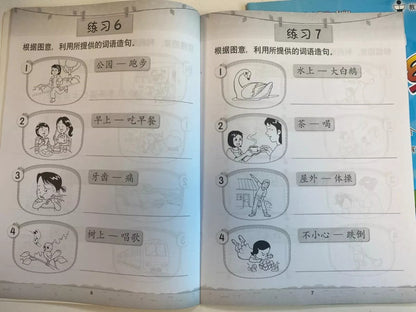 练习6
根据图意，利用所提供的词语造句。
1
公园 — 跑步
2
早上 — 吃早餐
3
牙齿 — 痛
4
树上 — 唱歌
6
练习7
根据图意，利用所提供的词语造句。
1
水上 — 大白鹅
2
茶 — 喝
3
屋外 — 体操
4
不小心 — 跌倒
7